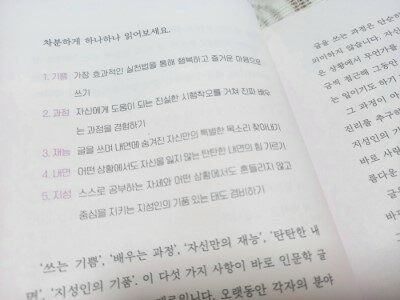 차분하게 하나하나 읽어보세요.
1. 기쁨 가장 효과적인 실천법을 통해 행복하고 즐거운 마음으로
쓰기
2. 과정 자신에게 도움이 되는 진실한 시행착오를 거쳐 진짜 배우
는 과정을 경험하기
3. 재능 글을 쓰며 내면에 숨겨진 자신만의 특별한 목소리 찾아내기
4. 내면 어떤 상황에서도 자신을 잃지 않는 탄탄한 내면의 힘 기르기
5. 지성 스스로 공부하는 자세와 어떤 상황에서도 흔들리지 않고
중심을 지키는 지성인의 기품 있는 태도 겸비하기
'쓰는 기쁨', '배우는 과정', '자신만의 재능', '탄탄한 내
면', '지성인의 기품'. 이 다섯 가지 사항이 바로 인문학 글
입니다. 오랫동안 각자의 분야
글을 쓰는 과정은 단순히
의미하지 않습니다. 자신
은 상황에서 무언가를
글씩 접근해 그동안
는 일이기도 하기
그 과정이 아
진리를 추구하
지성인의 기
바로 사람
름다운
글은
바